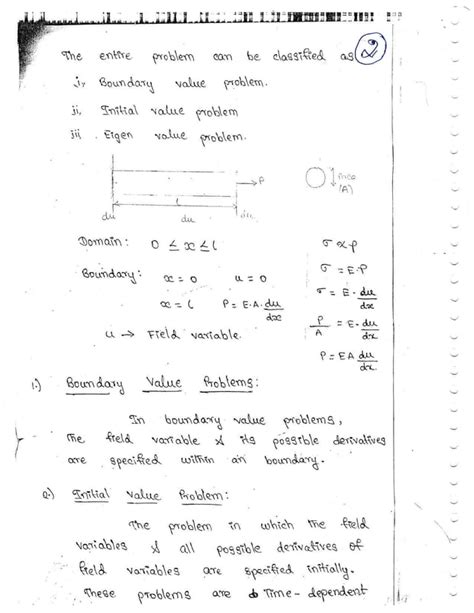 The entire problem can be classified as 2
i, Boundary value problem.
ii, Initial value problem
iii. Eigen value problem.
P
Area
(A)
l
du du du
Domain: 0 ≤ x ≤ l
σ ∝ ρ
Boundary: x = 0 u = 0
σ = E·P
x = l P = E·A· du/dx
σ = E· du/dx
u → Field variable.
P/A = E· du/dx
P = EA du/dx
1.) Boundary Value Problems:
In boundary value problems,
The field variable & its possible derivatives
are specified within an boundary.
2.) Initial value Problem:
The problem in which the field
variables & all possible derivatives of
field variables are specified initially.
These problems are Time-dependent